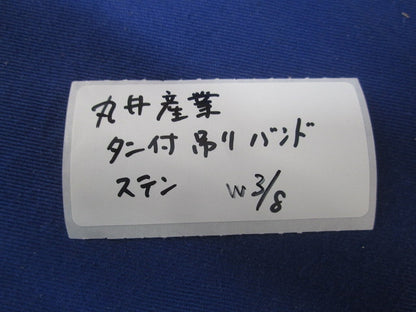 丸井産業
タン付 吊りバンド
ステン W 3/8